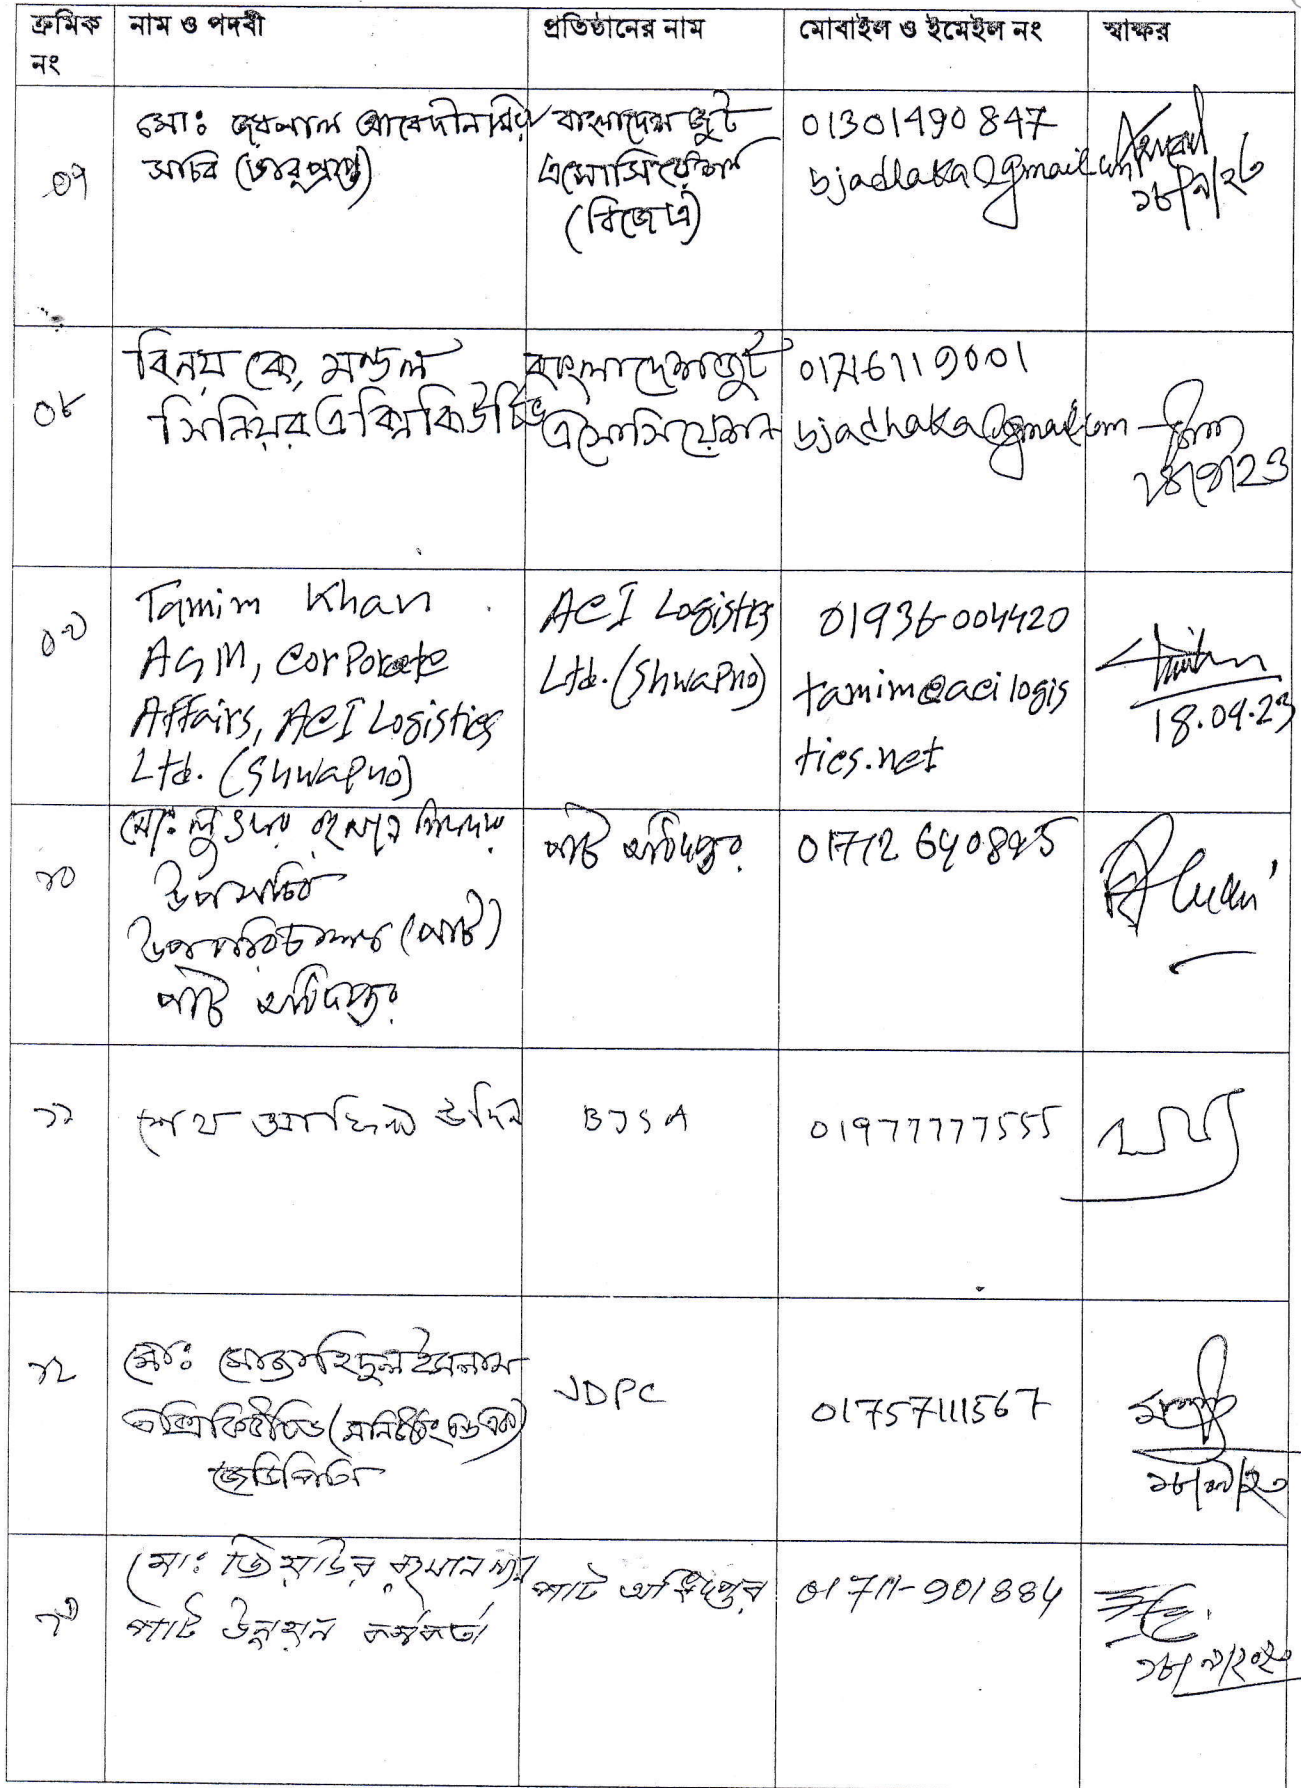 ক্রমিক নং
নাম ও পদবী
প্রতিষ্ঠানের নাম
মোবাইল ও ইমেইল নং
স্বাক্ষর
০৭
মোঃ জয়নাল আবেদীন মিয়া
সচিব (ভারপ্রাপ্ত)
বাংলাদেশ জুট
এসোসিয়েশন
(বিজেএ)
01301490847
bjadhaka@gmail.com
১৮/৯/২৩
০৮
বিনয় কে, মন্ডল
সিনিয়র এক্সিকিউটিভ
বাংলাদেশ জুট
এসোসিয়েশন
01716119001
bjadhaka@gmail.com
18/9/23
০৯
Tamim Khan
AGM, Corporate
Affairs, ACI Logistics
Ltd. (Shwapno)
ACI Logistics
Ltd. (Shwapno)
01936-004420
tamim@acilogis
tics.net
18.09.23
১০
মোঃ লুৎফর রহমান
উপসচিব
উপপরিচালক (পাট)
পাট অধিদপ্তর
পাট অধিদপ্তর
01712640895
১১
শেখ উদ্দিন
BJSA
01977777555
১২
মোঃ মোজাহিদুল ইসলাম
এক্সিকিউটিভ
জেডিপিসি
JDPC
01757111567
১৮/০৯/২৩
১৩
মোঃ জিয়াউর রহমান খান
পাট উন্নয়ন কর্মকর্তা
পাট অধিদপ্তর
01711-901884
১৮/৯/২০২৩